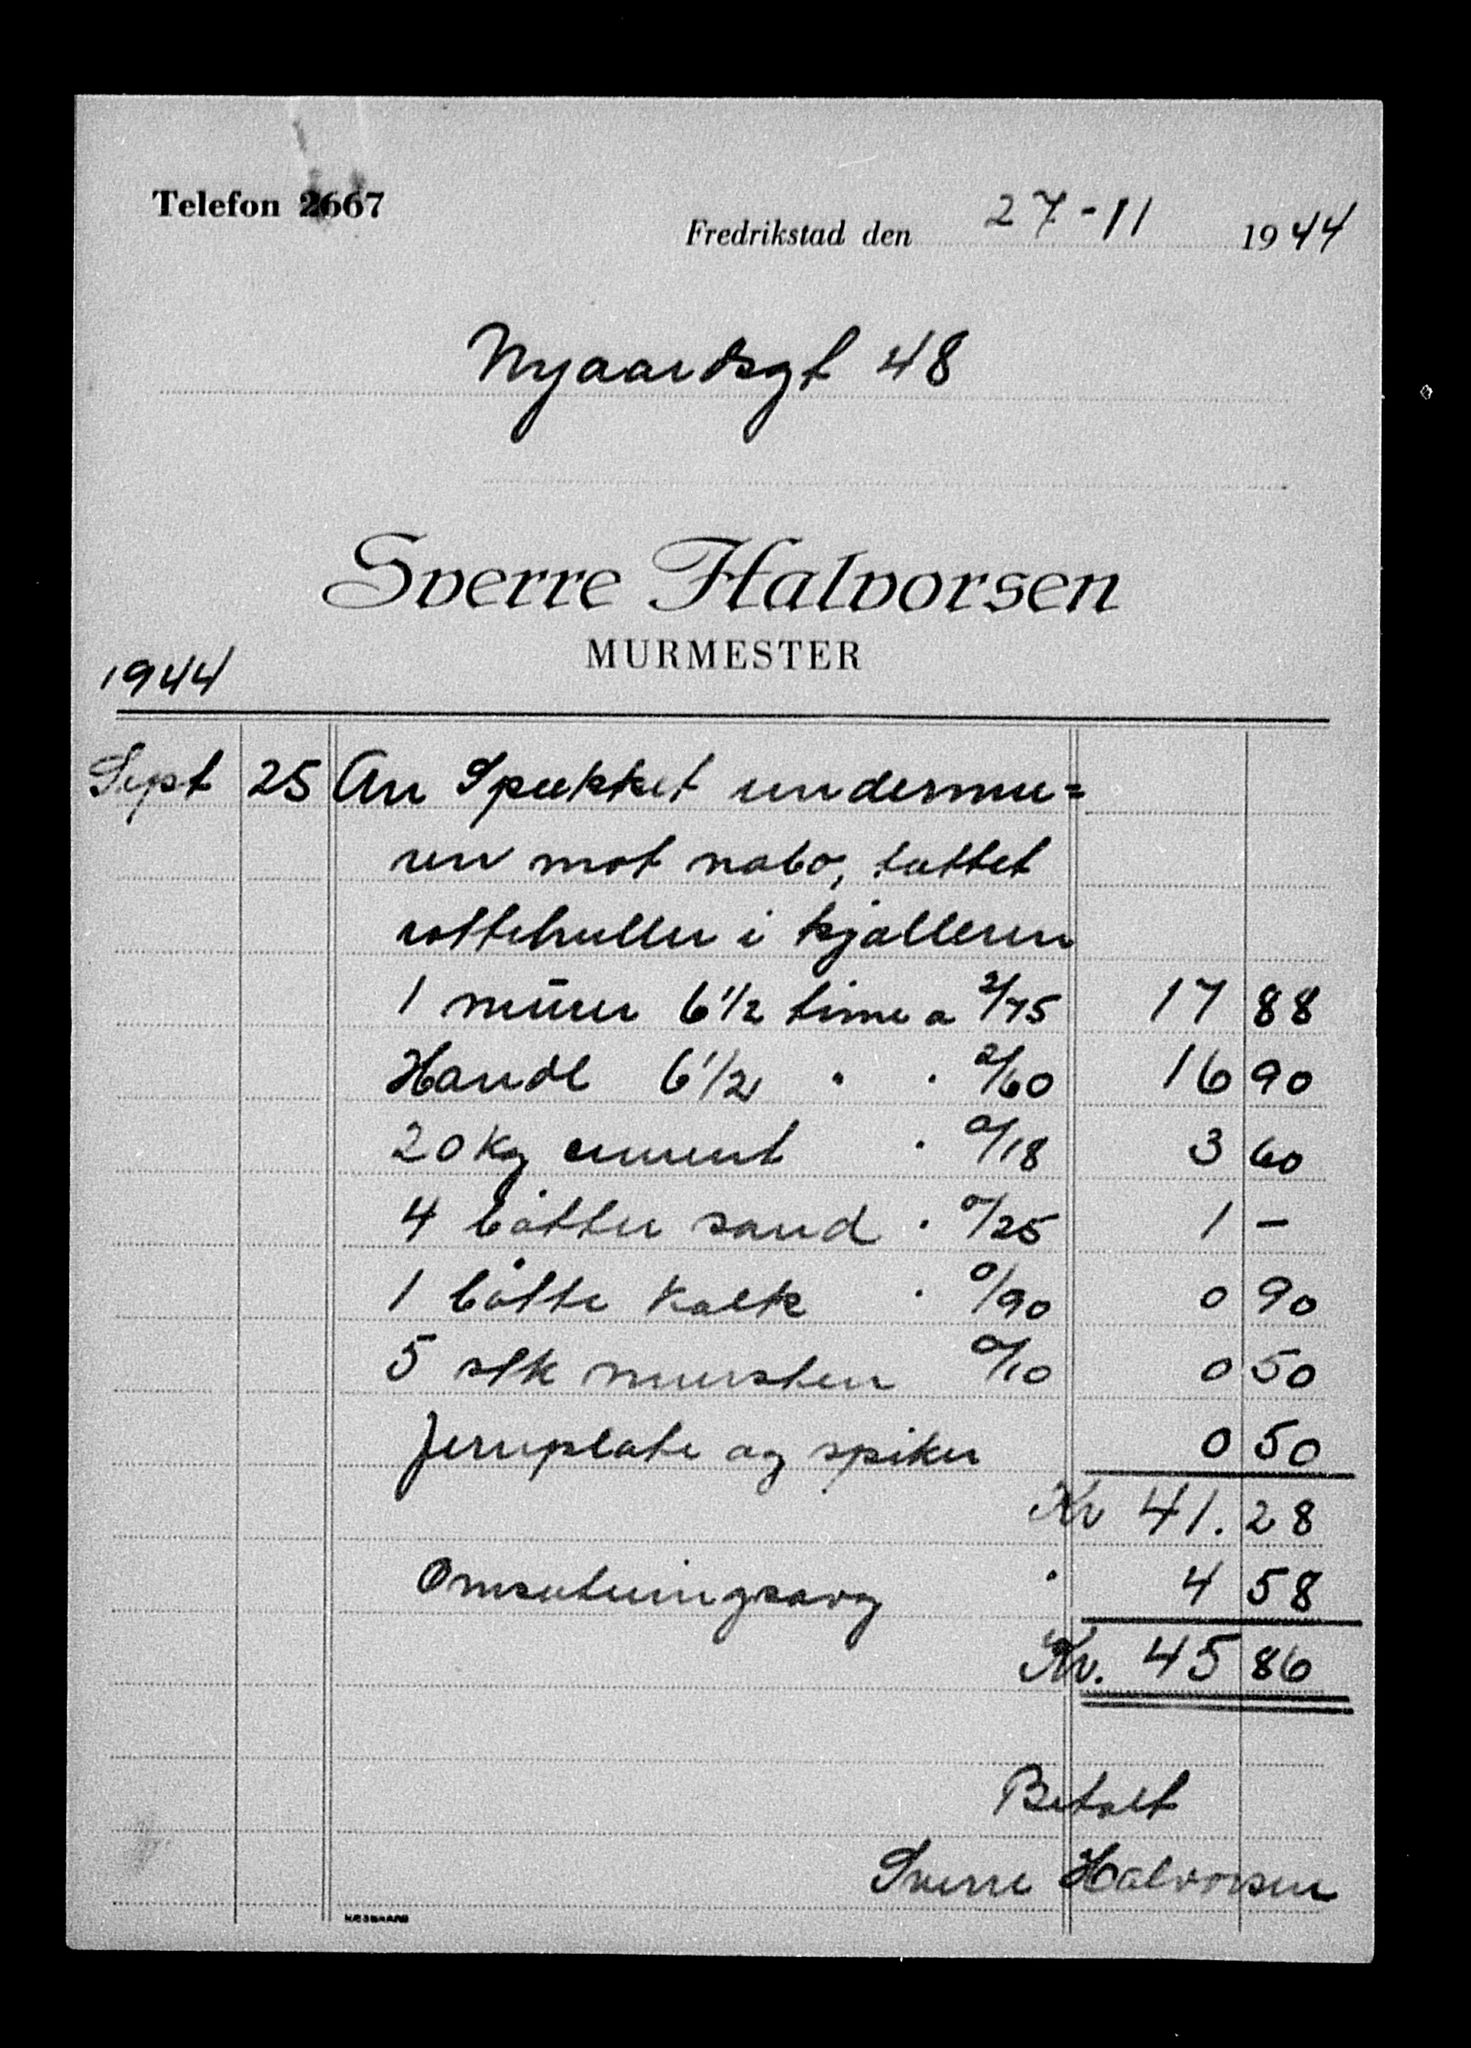 Telefon 2667
Fredrikstad den 27-11 1944
Nyaardsgt 48
Sverre Halvorsen
MURMESTER
1944
Sept 25 An Spekket undermu=
ren mot nabo, tettet
rottehuller i kjelleren
1 mūrer 6 1/2 time a 2/75 17 88
Handl 6 1/2 " " 2/60 16 90
20 kg cement " 0/18 3 60
4 bøtter sand " 0/25 1 –
1 bøtte kalk " 0/90 0 90
5 stk mursten 0/10 0 50
Jernplate og spiker 0 50
Kr 41.28
Omsetningsavg " 4 58
Kr. 45 86
Betalt
Sverre Halvorsen